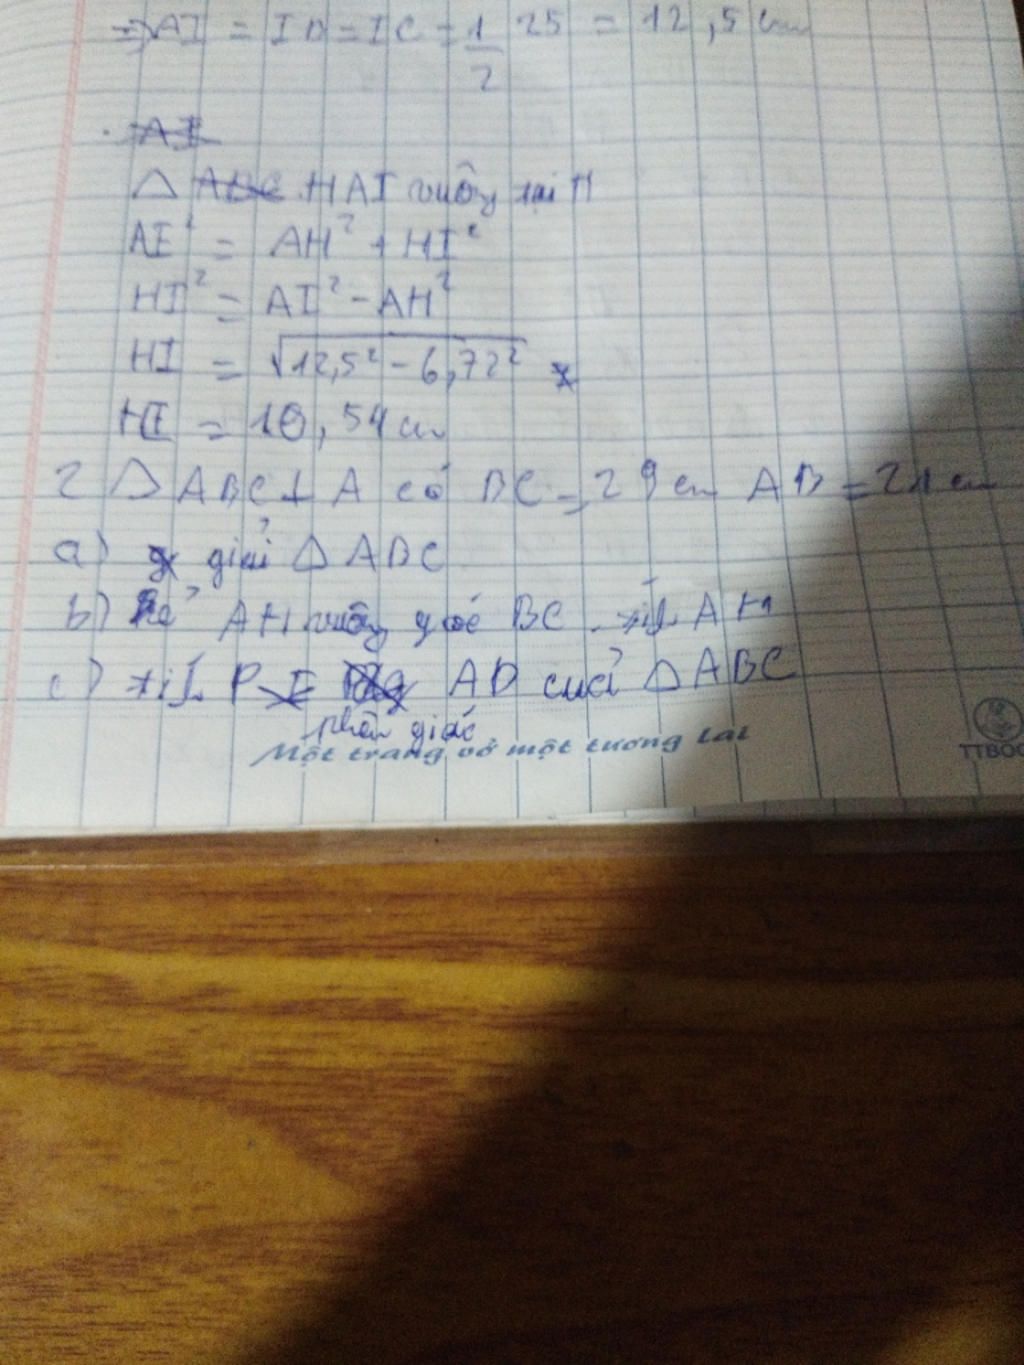 => AI = IB = IC = 1/2 25 = 12,5 cm
AI
△ ABC HAI vuông tại H
AI² = AH² + HI²
HI² = AI² - AH²
HI = √12,5² - 6,72²
HI = 10,54 cm
2 △ ABC ⊥ A có BC = 29 cm AB = 21 cm
a) giải △ ABC
b) Kẻ AH vuông góc BC. tính AH
c) tính P AD của △ ABC
phân giác
Một trang vở một tương lai
TTBOO